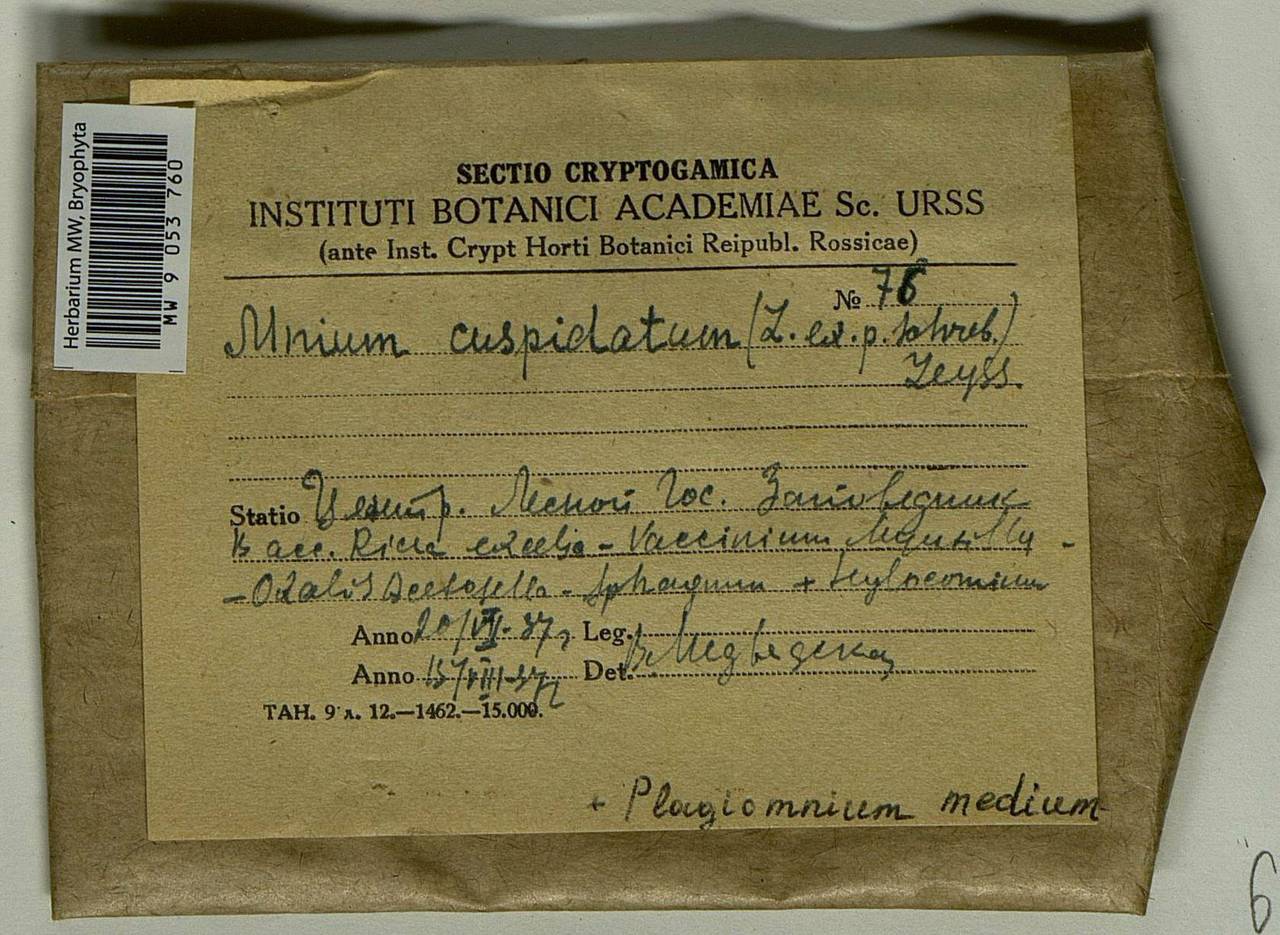 Herbarium MW, Bryophyta
MW 9 053 760
SECTIO CRYPTOGAMICA
INSTITUTI BOTANICI ACADEMIAE Sc. URSS
(ante Inst. Crypt Horti Botanici Reipubl. Rossicae)
№ 76
Mnium cuspidatum (L. ex. p. Schreb.)
Leyss.
Statio Центр. Лесной Гос. Заповедник
В acc. Picea excelsa - Vaccinium Myrtillus -
- Oxalis Acetosella - Sphagnum + Hylocomium
Anno 20/VI-37 Leg.
Anno 15/VIII-37 Det. В. Медведска
ТАН. 9 л. 12.—1462.—15.000.
+ Plagiomnium medium
6